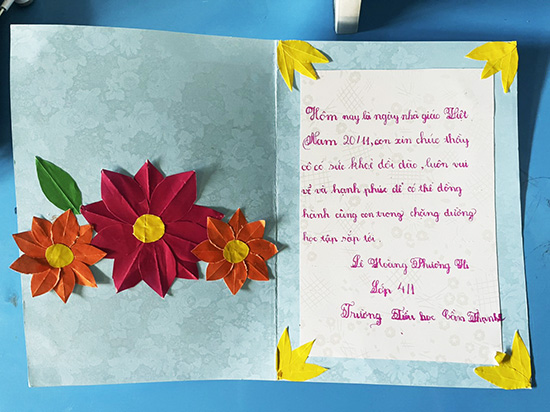 Hôm nay là ngày nhà giáo Việt
Nam 20/11, con xin chúc thầy
cô có sức khoẻ dồi dào, luôn vui
vẻ và hạnh phúc để có thể đồng
hành cùng con trong chặng đường
học tập sắp tới.
Lê Hoàng Phương
Lớp 4/1
Trường Tiểu học Cần Thạnh